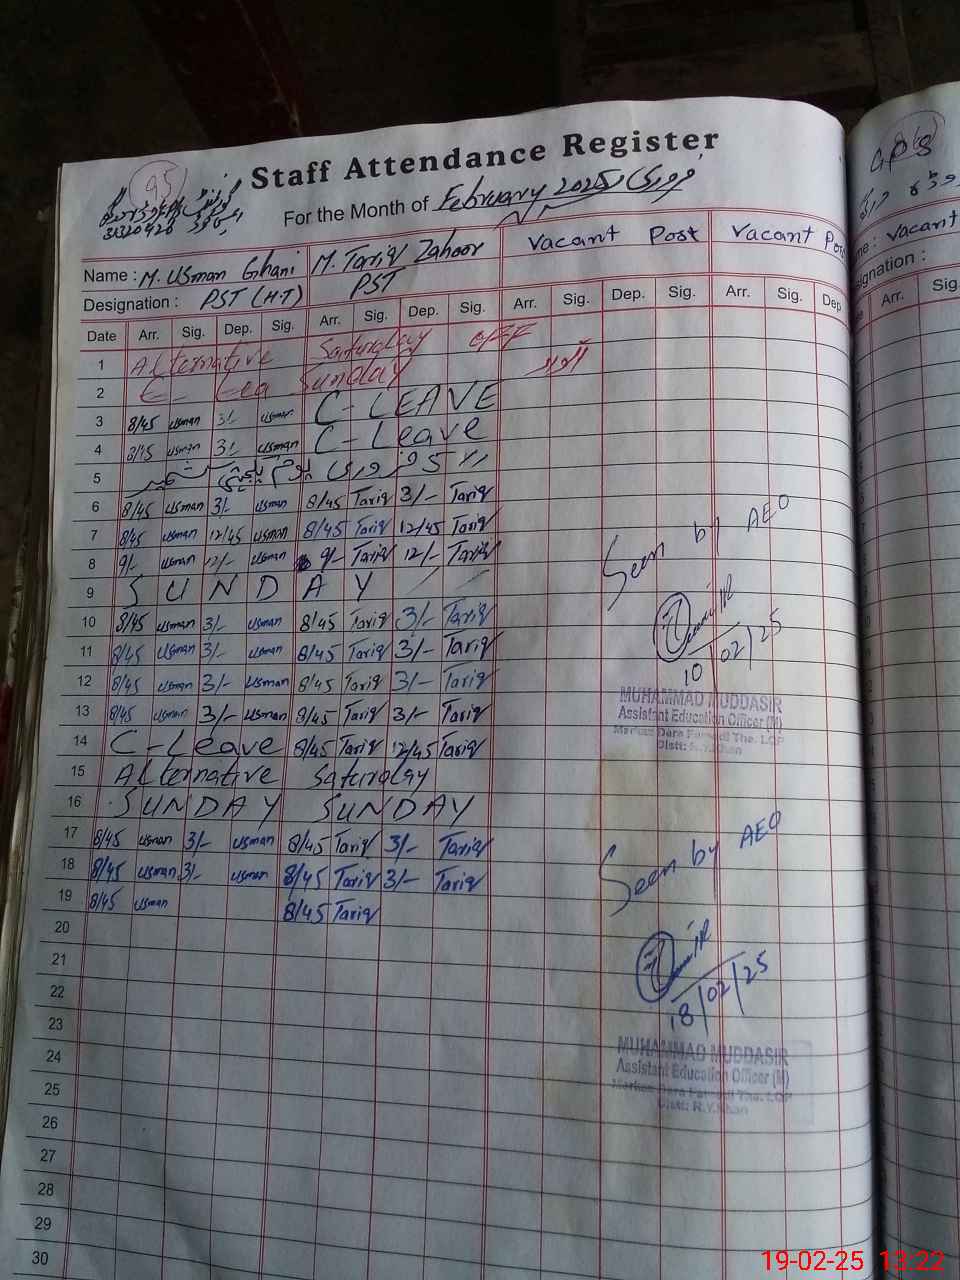 95
Staff Attendance Register
31320428
For the Month of February 2025 فروری
Name : M. Usman Ghani M. Tariq Zahoor Vacant Post Vacant Post
Designation : PST (H.T) PST
Date Arr. Sig. Dep. Sig. Arr. Sig. Dep. Sig. Arr. Sig. Dep. Sig. Arr. Sig. Dep
1 Alternative Saturday off
2 Sunday
3 8/45 usman 3/- usman C-LEAVE
4 8/45 usman 3/- usman C-Leave
5 5 فروری یوم یکجہتی کشمیر
6 8/45 usman 3/- usman 8/45 Tariq 3/- Tariq
7 8/45 usman 12/45 usman 8/45 Tariq 12/45 Tariq
8 9/- usman 12/- usman 9/- Tariq 12/- Tariq
9 SUNDAY
10 8/45 usman 3/- usman 8/45 Tariq 3/- Tariq
11 8/45 usman 3/- usman 8/45 Tariq 3/- Tariq
12 8/45 usman 3/- usman 8/45 Tariq 3/- Tariq
13 8/45 usman 3/- usman 8/45 Tariq 3/- Tariq
14 C-Leave 8/45 Tariq 12/45 Tariq
15 Alternative Saturday
16 SUNDAY SUNDAY
17 8/45 usman 3/- usman 8/45 Tariq 3/- Tariq
18 8/45 usman 3/- usman 8/45 Tariq 3/- Tariq
19 8/45 usman 8/45 Tariq
20
21
22
23
24
25
26
27
28
29
30
Seen by AEO
10/02/25
MUHAMMAD MUDDASIR
Assistant Education Officer (M)
Markaz Dera The. LQP
Distt: R.Y.Khan
Seen by AEO
18/02/25
MUHAMMAD MUDDASIR
Assistant Education Officer (M)
Markaz Dera The. LQP
Distt: R.Y.Khan
me : Vacant
signation :
Arr. Sig.
19-02-25 13:22